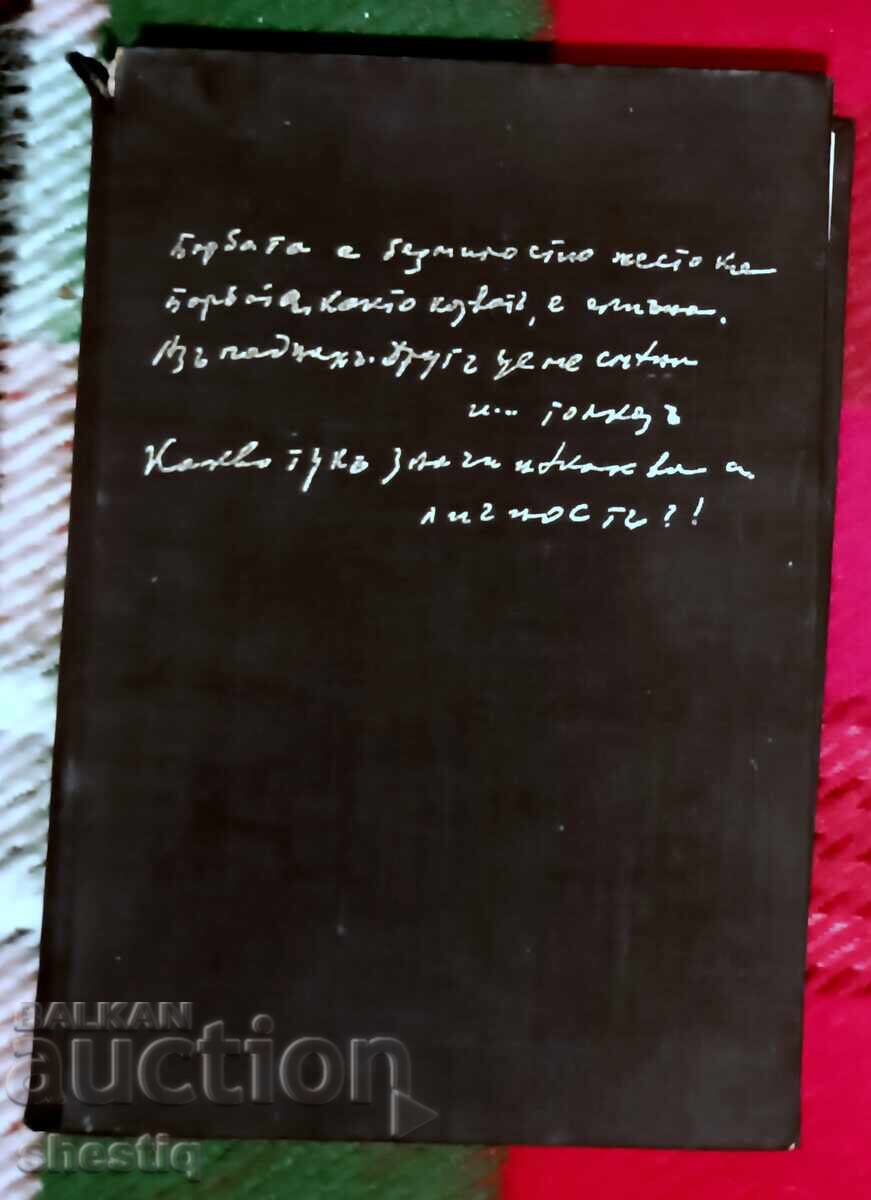 Борбата е безмилостно жестока
Борбата, както казватъ, е епична.
Азъ паднахъ. Другъ ще ме смѣни
и... толкозъ
Какво тукъ значи нѣкаква си
личность?!
BALKAN
auction
shestiq